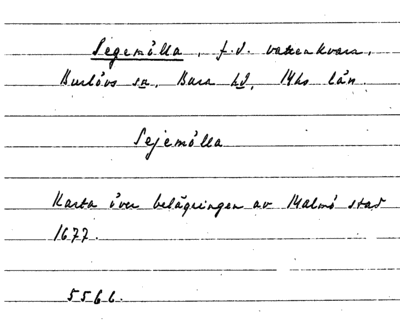 Segemölla, f.d. vattenkvarn,
Burlövs sn, Bara hd, Mhs län.
Sejemölla
Karta över belägringen av Malmö stad
1677.
5566.